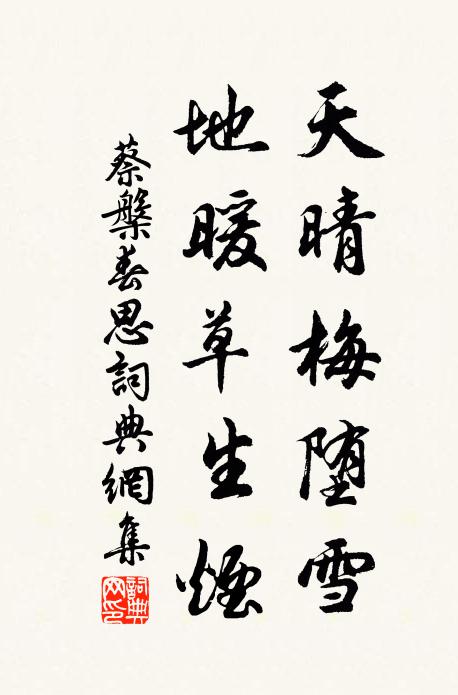 天晴梅堕雪
地暖草生煙
蔡槃春思詞典網集
詞典網印